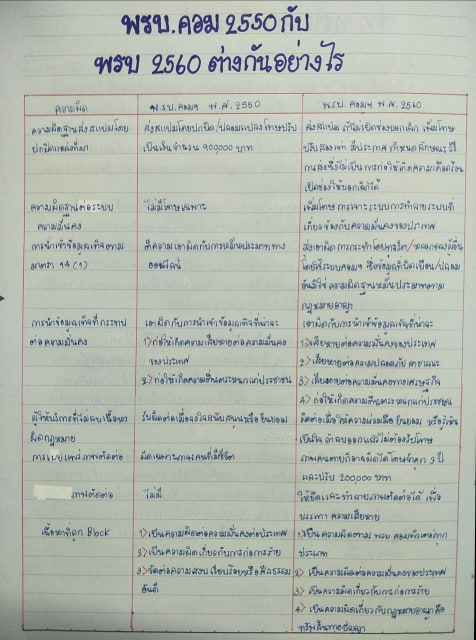 พรบ.คอม 2550 กับ
พรบ 2560 ต่างกันอย่างไร
ความผิด
พ.ร.บ.คอมฯ พ.ศ. 2550
พ.ร.บ.คอมฯ พ.ศ. 2560
ความผิดฐานส่งสแปมโดย
ปกปิดแหล่งที่มา
ส่งสแปมโดยปกปิด/ปลอมแปลงโทษปรับ
เป็นเงินจำนวน 900000 บาท
ส่งสแปม ถ้าไม่เปิดช่องบอกเลิก เพิ่มโทษ
ปรับสองเท่า มีประกาศ กำหนด ลักษณะ วิธี
การส่งซึ่งไม่เป็น การก่อให้เกิดความเดือดร้อน
เปิดช่องให้บอกเลิกได้
ความผิดฐานต่อระบบ
ความมั่นคง
ไม่มีโทษเฉพาะ
เพิ่มโทษ การเจาะระบบการทำลายระบบที่
เกี่ยวข้องกับความมั่นคงของประเทศ
การนำเข้าข้อมูลเท็จตาม
มาตรา 14 (1)
ตีความเอาผิดกับการหมิ่นประมาททาง
ออนไลน์
มุ่งเอาผิด การกระทำโดยทุจริต/หลอกลวงผู้อื่น
โดยใช้ระบบคอมฯ ซึ่งข้อมูลที่บิดเบือน/ปลอม
อันมิใช่ ความผิดฐานหมิ่นประมาทตาม
กฎหมายอาญา
การนำข้อมูลเท็จที่กระทบ
ต่อความมั่นคง
เอาผิดกับการนำเข้าข้อมูลเท็จที่น่าจะ
1) ก่อให้เกิดความเสียหายต่อความมั่นคง
ของประเทศ
2) ก่อให้เกิดความตื่นตระหนกแก่ประชาชน
เอาผิดกับการนำเข้าข้อมูลเท็จที่น่าจะ
1) เสียหายต่อความมั่นคง
2) เสียหายต่อความปลอดภัย สาธารณะ
3) เสียหายต่อความมั่นคงทางเศรษฐกิจ
4) ก่อให้เกิดความตื่นตระหนกแก่ประชาชน
ผู้ให้บริการที่ไม่ลบเนื้อหา
ผิดกฎหมาย
รับผิดต่อเมื่อจงใจสนับสนุนหรือยินยอม
ผิดต่อเมื่อให้ความร่วมมือ ยินยอม หรือรู้เห็น
เป็นใจ ถ้าลบออกแล้วไม่ต้องรับโทษ
การเผยแพร่ภาพตัดต่อ
ผิดเฉพาะภาพคนที่มีชีวิต
ภาพคนตายก็อาจผิดได้ โทษจำคุก 3 ปี
และปรับ 200,000 บาท
ภาพตัดต่อ
ไม่มี
ให้ยึดและทำลายภาพตัดต่อได้ เพื่อ
บรรเทา ความเสียหาย
เนื้อหาที่ถูก Block
1) เป็นความผิดต่อความมั่นคงต่อประเทศ
2) เป็นความผิดเกี่ยวกับการก่อการร้าย
3) ขัดต่อความสงบเรียบร้อยหรือศีลธรรม
อันดี
1) เป็นความผิดตาม พรบ คอมพิวเตอร์ทุก
ประเภท
2) เป็นความผิดต่อความมั่นคงของประเทศ
3) เป็นความผิดเกี่ยวกับการก่อการร้าย
4) เป็นความผิดเกี่ยวกับกฎหมายอาญา คือ
ทรัพย์สินทางปัญญา